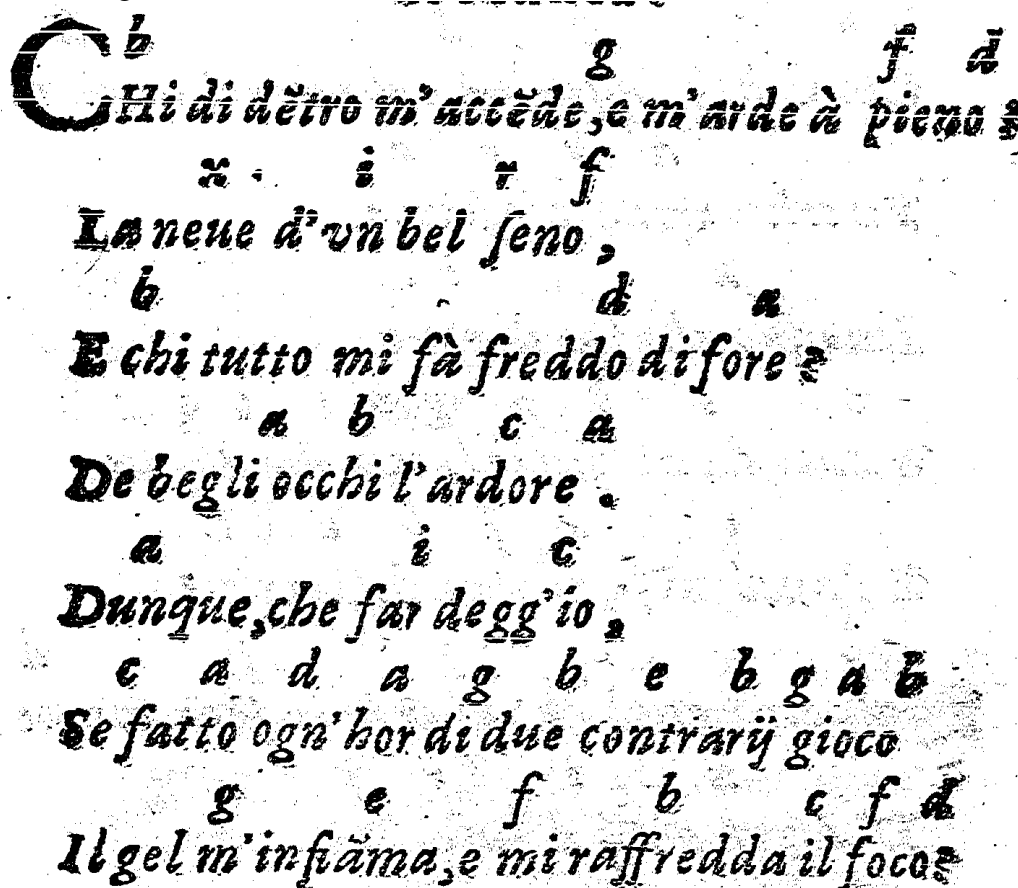 b g f d
CHi di dẽtro m'accẽde, e m'arde à pieno?
x i r f
La neue d'vn bel ſeno,
b d a
E chi tutto mi fà freddo di fore?
a b c a
De begli occhi l'ardore.
a i c
Dunque, che far degg'io,
c a d a g b e b g a b
Se fatto ogn'hor di due contrarij gioco
g e f b c f d
Il gel m'infiãma, e mi raffredda il foco?